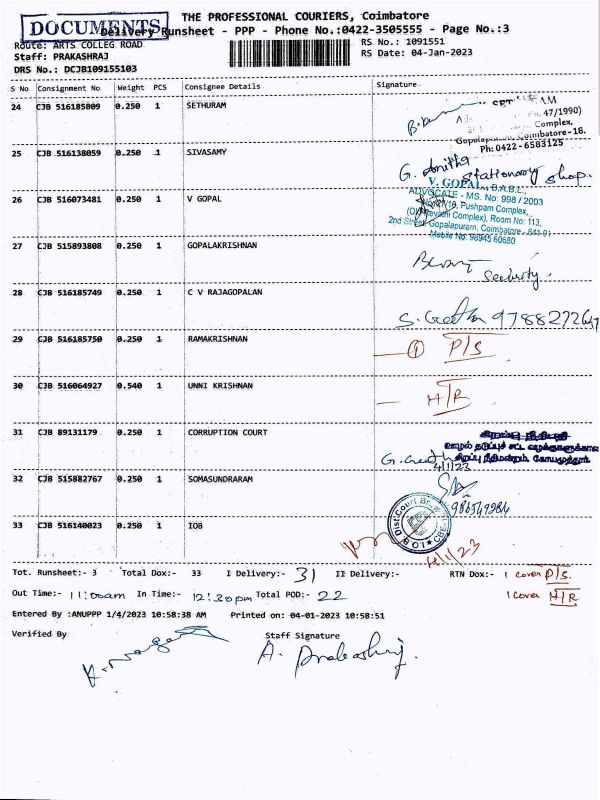 DOCUMENTS
THE PROFESSIONAL COURIERS, Coimbatore
Delivery Runsheet - PPP - Phone No.:0422-3505555 - Page No.:3
Route: ARTS COLLEG ROAD
Staff: PRAKASHRAJ
DRS No.: DCJB109155103
RS No.: 1091551
RS Date: 04-Jan-2023
S No Consignment No Weight PCS Consignee Details Signature
24 CJB 516185809 0.250 1 SETHURAM
47/1990)
Complex,
Gopalapuram, Coimbatore-18.
Ph: 0422-6583125
25 CJB 516138059 0.250 1 SIVASAMY G. Anitha
Stationary shop.
26 CJB 516073481 0.250 1 V GOPAL
V. GOPAL, B.A.B.L.,
ADVOCATE - MS. No: 998 / 2003
Pushpam Complex,
Complex), Room No: 113,
2nd Street, Gopalapuram, Coimbatore - 641 01
Mobile No: 98945 60680
27 CJB 515893808 0.250 1 GOPALAKRISHNAN
Security.
28 CJB 516185749 0.250 1 C V RAJAGOPALAN
S. Geetha
29 CJB 516185750 0.250 1 RAMAKRISHNAN 1 P/S
30 CJB 516064927 0.540 1 UNNI KRISHNAN H/R
31 CJB 89131179 0.250 1 CORRUPTION COURT
ஊழல் தடுப்புச் சட்ட
சிறப்பு நீதிமன்றம், கோயமுத்தூர்.
G. Geetha
4/1/23
32 CJB 515882767 0.250 1 SOMASUNDRARAM
33 CJB 516140023 0.250 1 IOB
4/1/23
Tot. Runsheet:- 3 Total Dox:- 33 I Delivery:- 31 II Delivery:- RTN Dox:- 1 cover P/S.
Out Time:- 11:00am In Time:- 12:30pm Total POD:- 22 1 cover H/R
Entered By :ANUPPP 1/4/2023 10:58:38 AM Printed on: 04-01-2023 10:58:51
Verified By Staff Signature
A. Prakashraj.